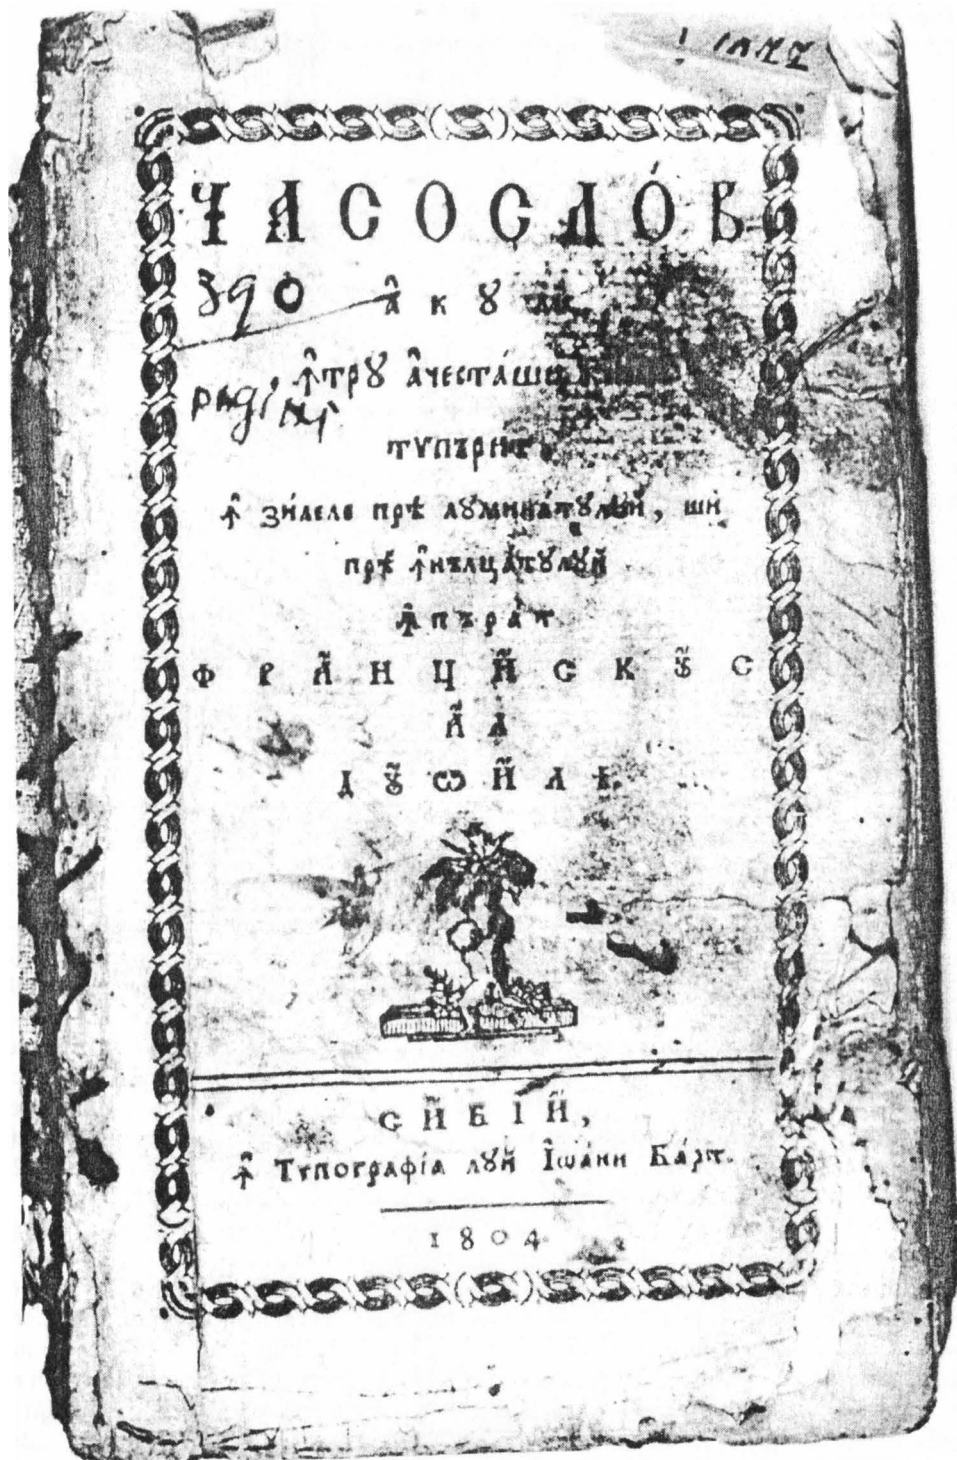 ЧАСОСЛО́В
390
А̂КꙊ
Ꙟ҆трꙋ а҆честа́ши
pagini
тѵпъри́т
Ꙟ҆ зи́леле прѣ лꙋмина́тꙋлꙋй, ши
прѣ ꙟ҆нълца́тꙋлꙋй
Ꙟ҆пърат
ФРА́НЦИ́СКꙊС
А́Л
ДꙊѠИ́ЛѢ.
СИ́БІЙ,
Ꙟ҆ Тѵпогра́фі́а лꙋй І҆ѡа́нн Ба́рт.
1804.